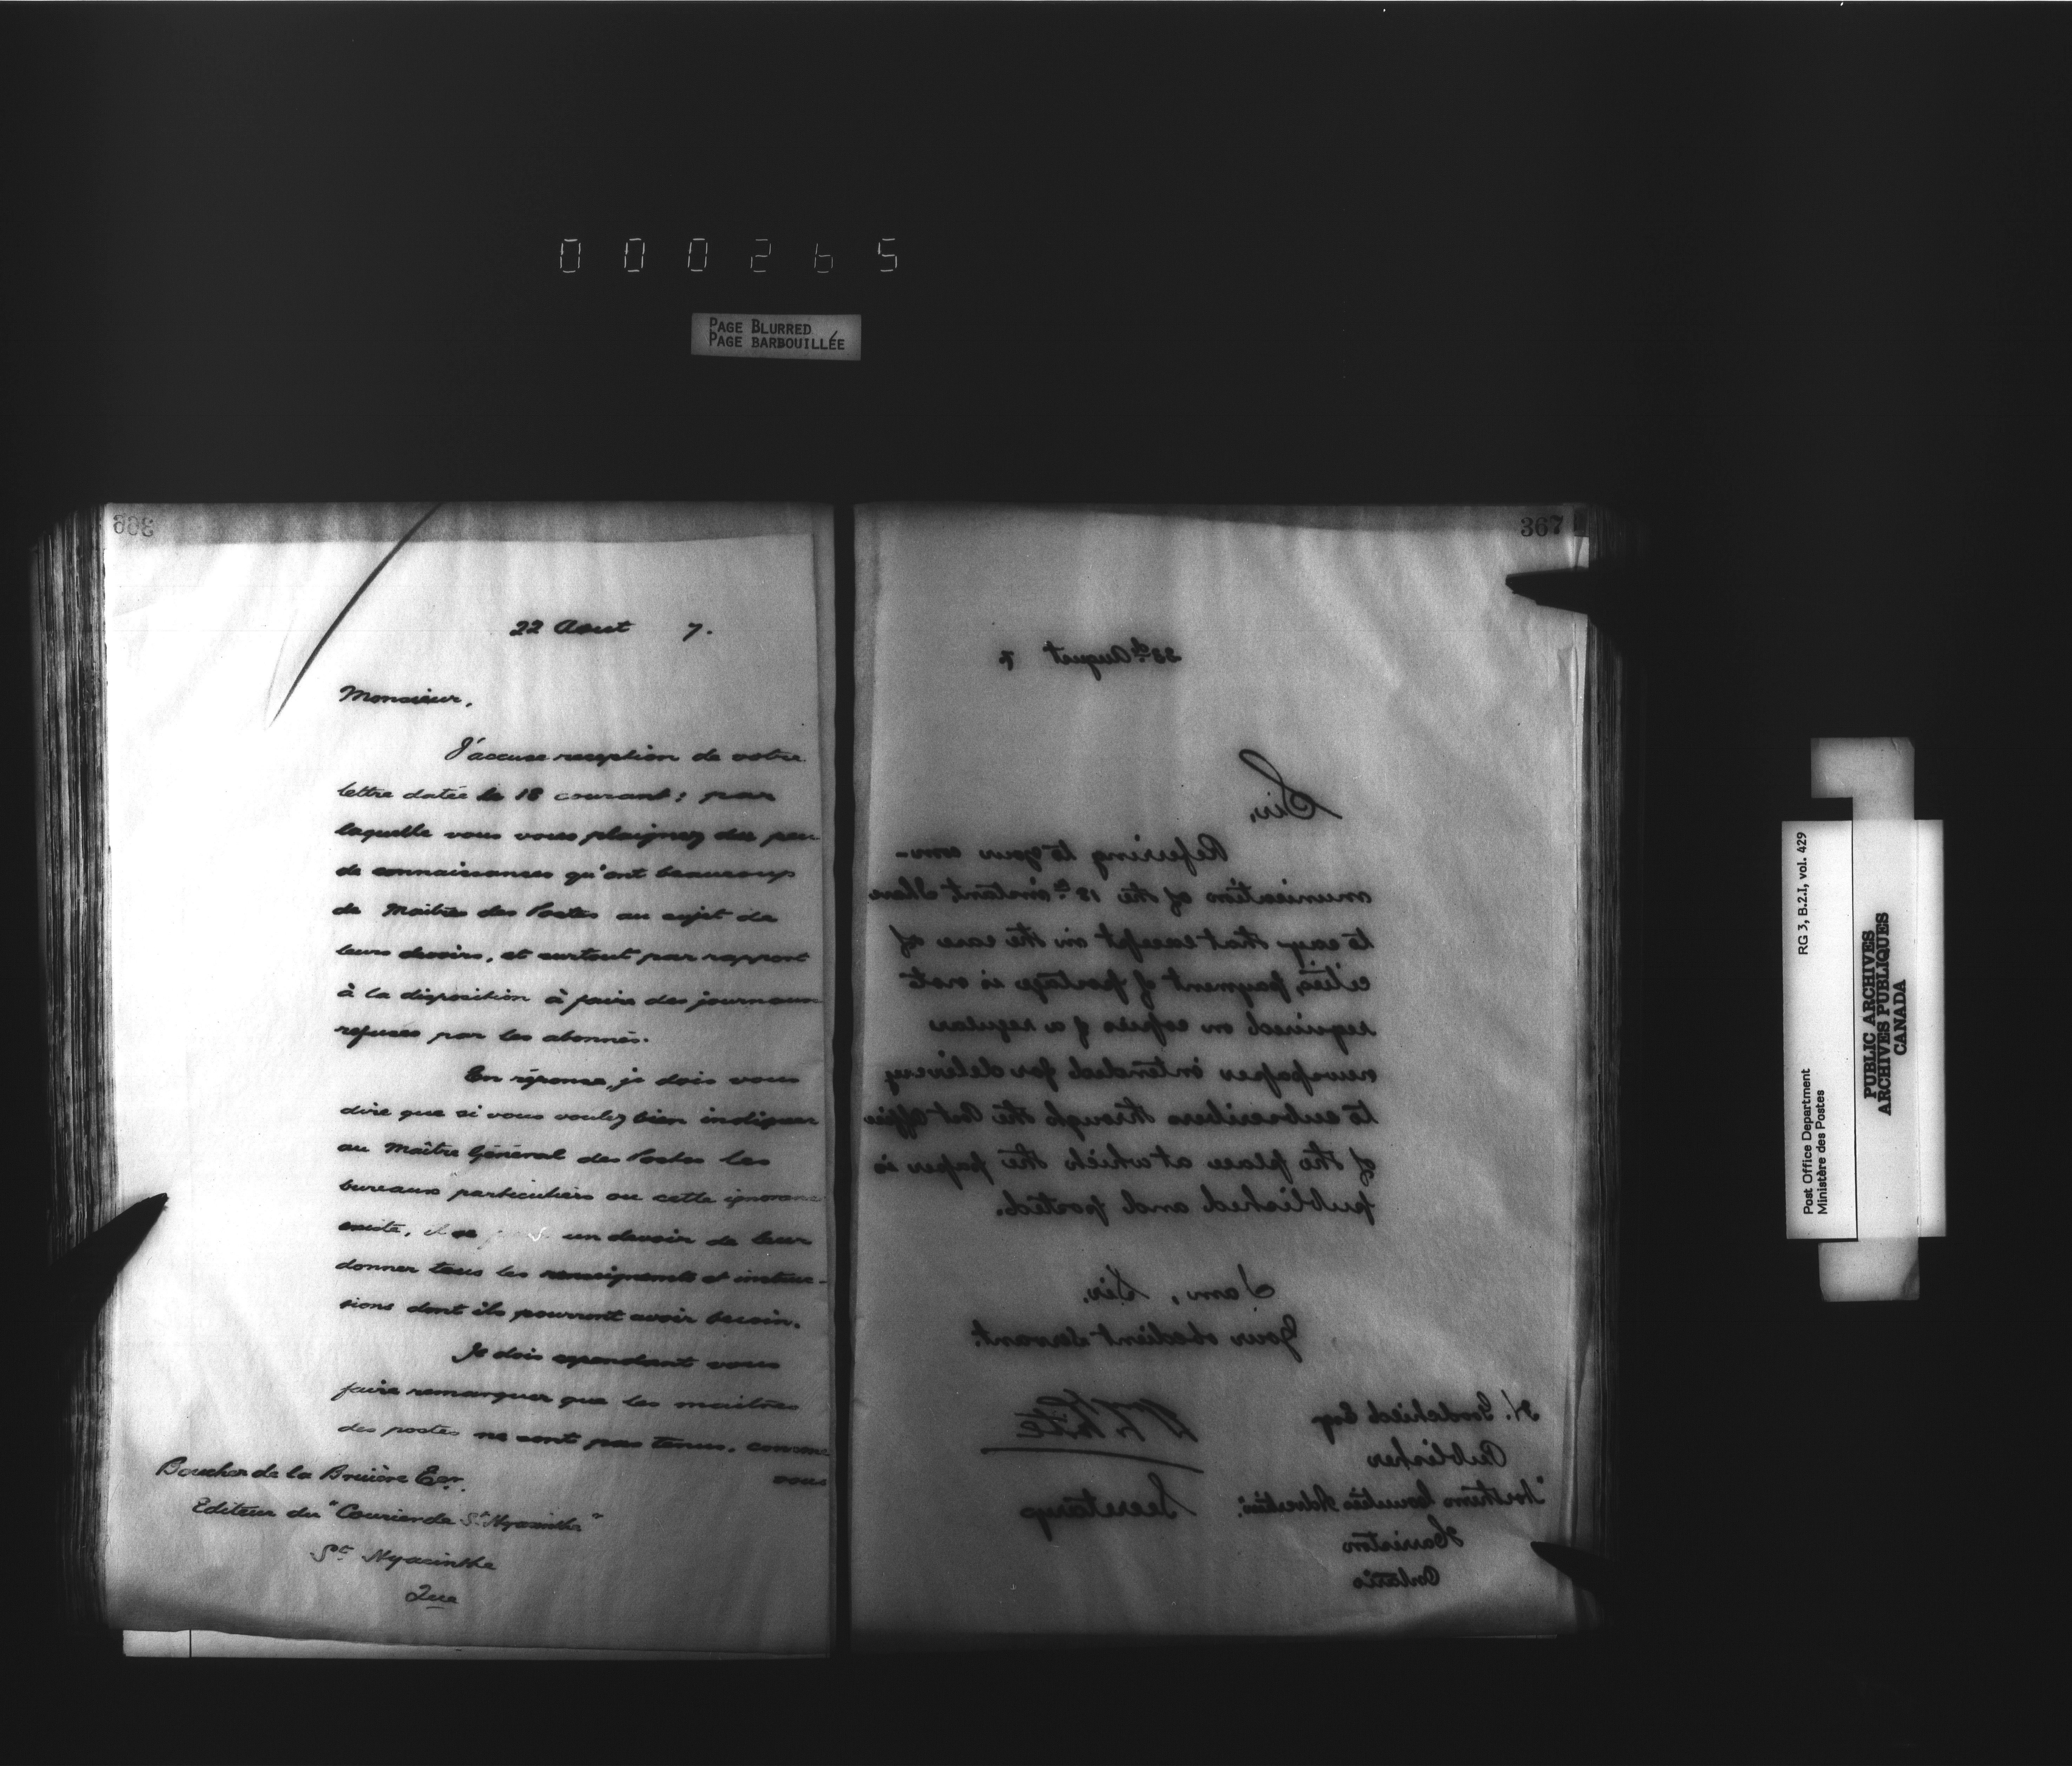 000265
PAGE BLURRED
PAGE BARBOUILLÉE
366
22 Aout 7.
Monsieur,
J'accuse reception de votre
lettre datée le 18 courant; par
laquelle vous vous plaignez du peu
de connaissances qu'ont beaucoup
de Maitres des Postes au sujet de
leurs devoirs, et surtout par rapport
à la disposition à faire des journaux
refusés par les abonnés.
En réponse, je dois vous
dire que si vous voulez bien indiquer
au Maître Général des Postes les
bureaux particuliers ou cette ignorance
existe, il se un devoir de leur
donner tous les renseignements et instruc-
sions dont ils pourront avoir besoin.
Je dois cependant vous
faire remarquer que les maitres
des postes ne sont pas tenus, comme
vous
Boucher de la Bruière Ecr.
Editeur du "Courier de St Hyacinthe"
St Hyacinthe
Que
367
22d August 7.
Sir,
Referring to your com-
munication of the 18th instant, I have
to say that except in the case of
cities, payment of postage is not
required on copies of a regular
newspaper intended for delivery
to subscribers through the Post Office
of the place at which the paper is
published and posted.
I am, Sir,
Your obedient Servant.
Secretary
H. Esq
Publisher
"Northern Counties Advertiser"
Harriston
Ontario
Post Office Department
Ministère des Postes
RG 3, B.2.I, vol. 429
PUBLIC ARCHIVES
ARCHIVES PUBLIQUES
CANADA